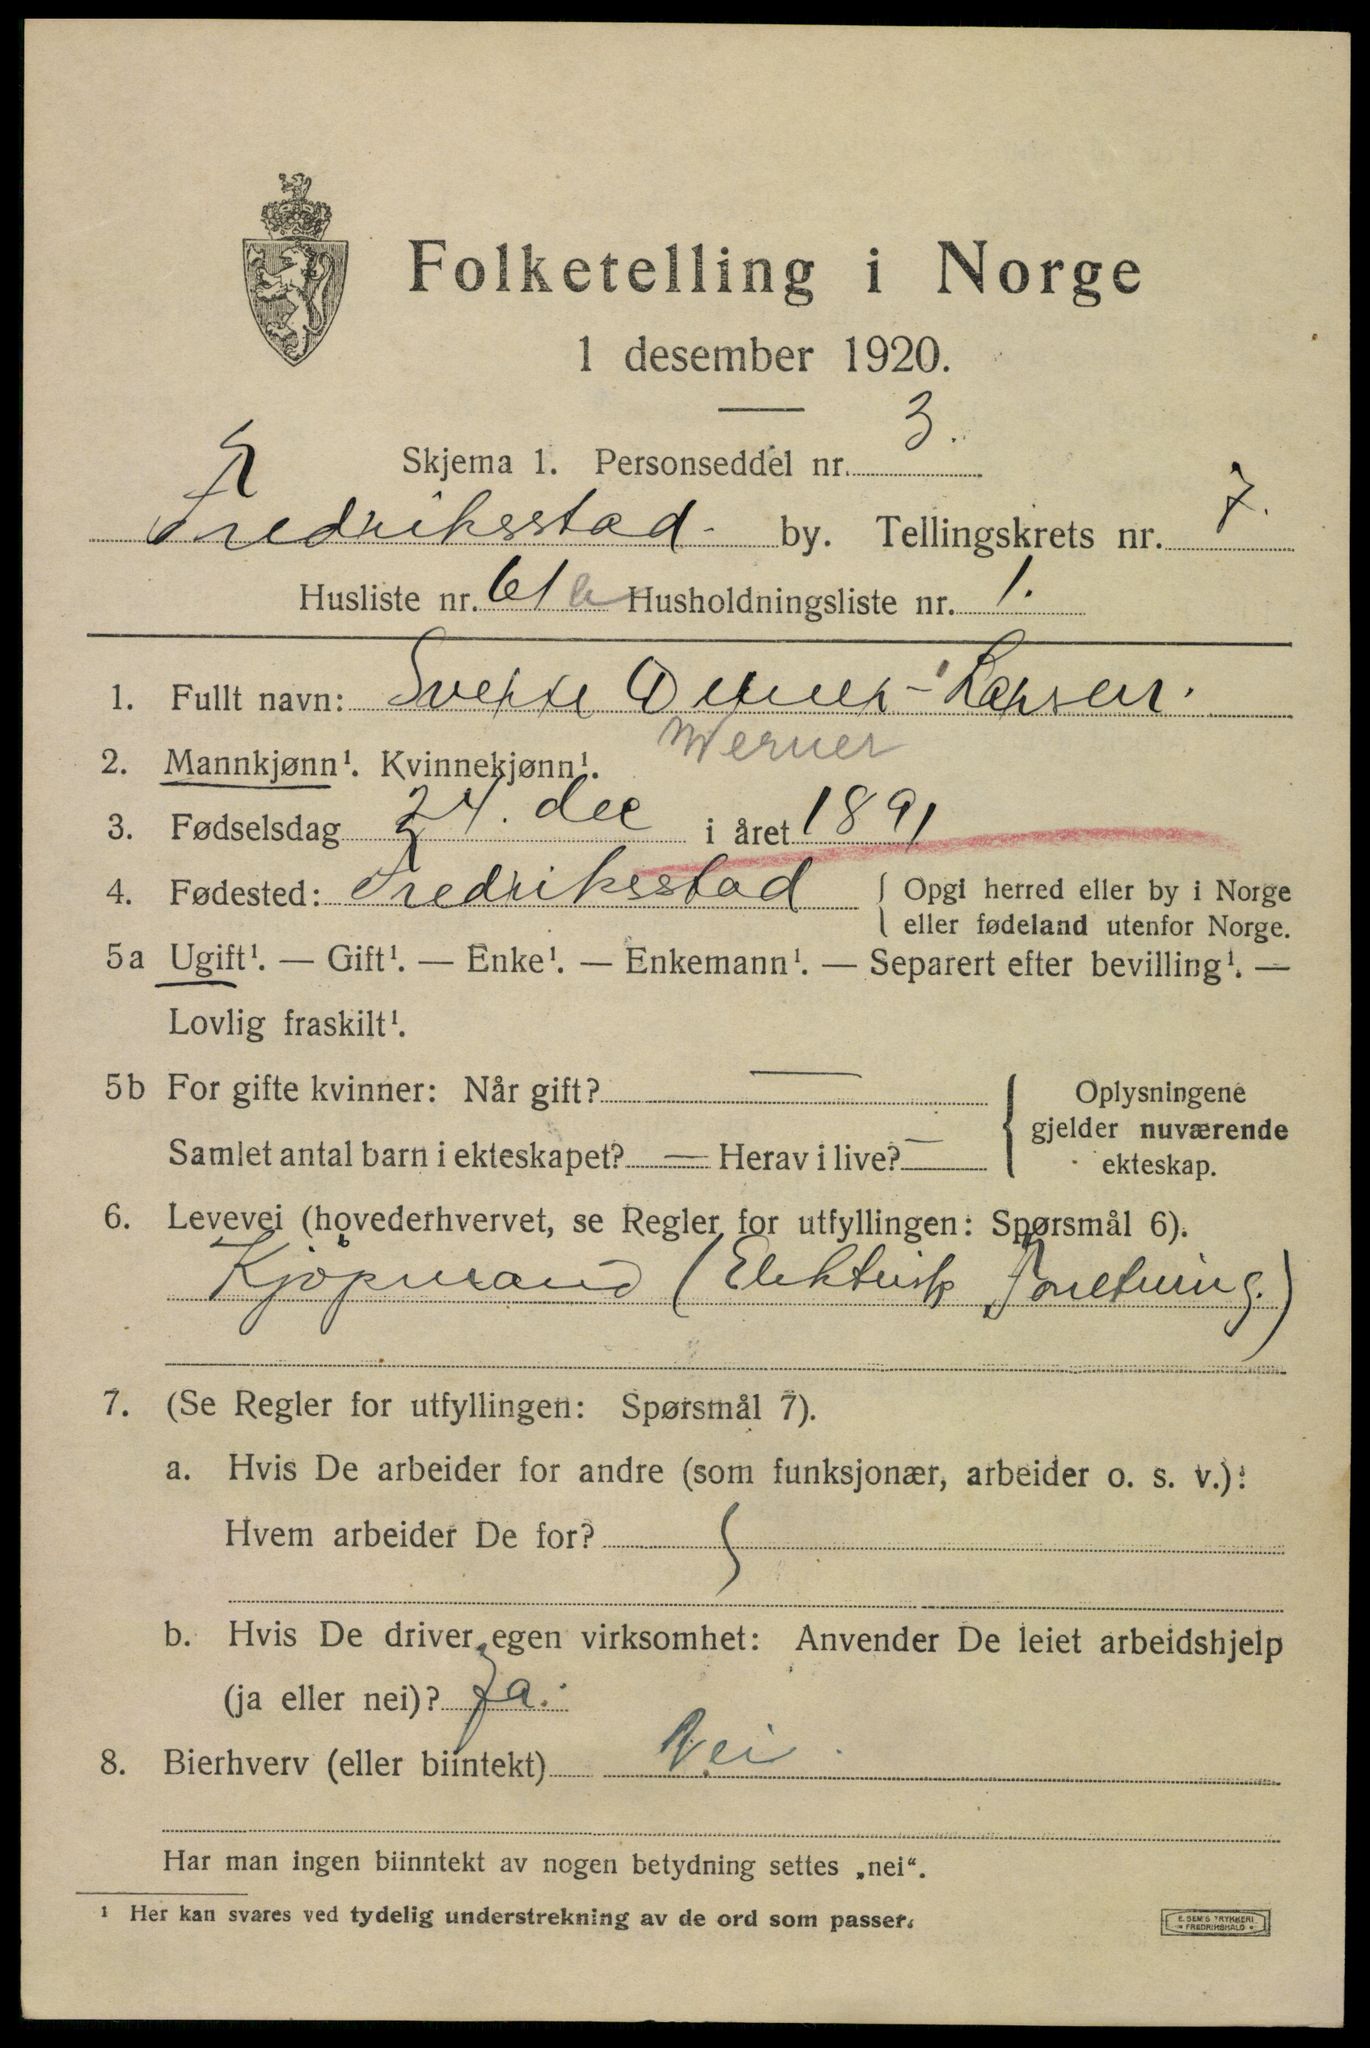 Folketelling i Norge
1 desember 1920.
Skjema 1. Personseddel nr. 3.
Fredriksstad by. Tellingskrets nr. 7.
Husliste nr. 61 b Husholdningsliste nr. 1.
1. Fullt navn: Sverre Werner-Larsen.
Werner
2. Mannkjønn¹. Kvinnekjønn¹.
3. Fødselsdag 24. dec i året 1891
4. Fødested: Fredriksstad { Opgi herred eller by i Norge
eller fødeland utenfor Norge.
5a Ugift¹. — Gift¹. — Enke¹. — Enkemann¹. — Separert efter bevilling¹. —
Lovlig fraskilt¹.
5b For gifte kvinner: Når gift? —
Samlet antal barn i ekteskapet? — Herav i live? —
Oplysningene
gjelder nuværende
ekteskap.
6. Levevei (hovederhvervet, se Regler for utfyllingen: Spørsmål 6).
Kjøpmand (Elektrisk Forretning.)
7. (Se Regler for utfyllingen: Spørsmål 7).
a. Hvis De arbeider for andre (som funksjonær, arbeider o. s. v.):
Hvem arbeider De for?
b. Hvis De driver egen virksomhet: Anvender De leiet arbeidshjelp
(ja eller nei)? Ja.
8. Bierhverv (eller biintekt) Nei.
Har man ingen biinntekt av nogen betydning settes „nei“.
¹ Her kan svares ved tydelig understrekning av de ord som passer.
E. SEM'S TRYKKERI
FREDRIKSHALD